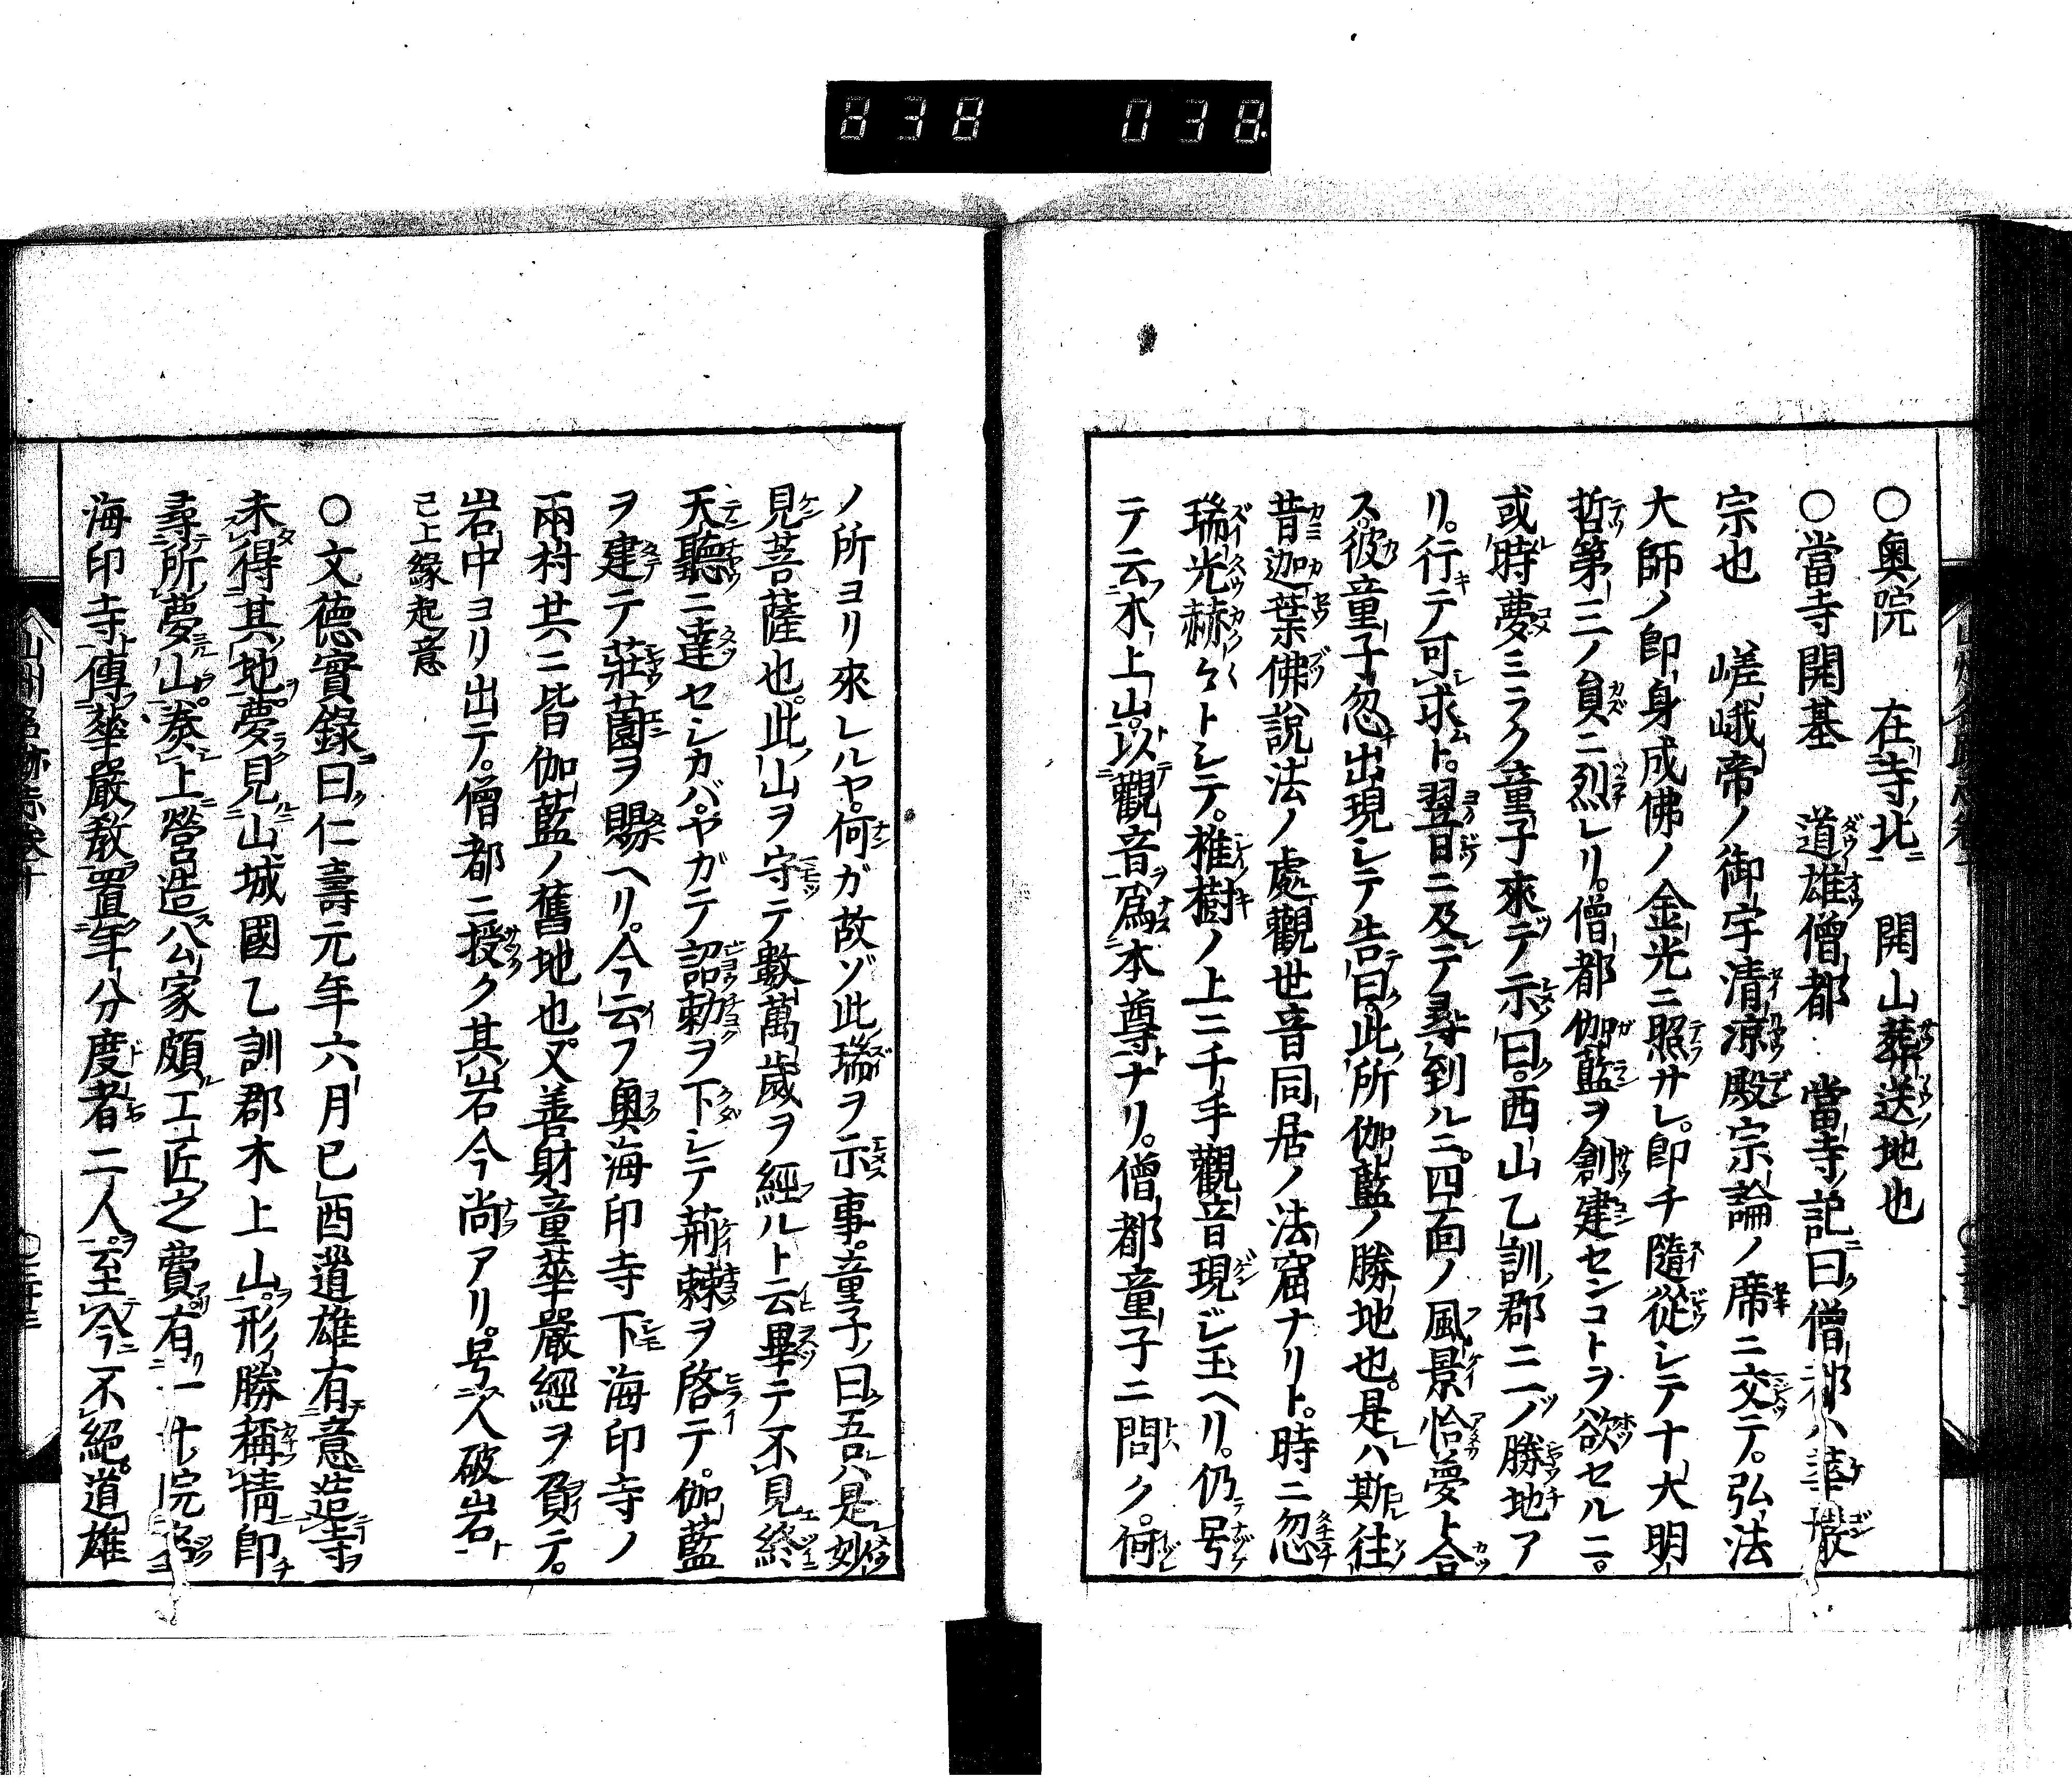 838 038
〇奥院 在寺北 開山葬送地也
〇當寺開基 道雄僧都 當寺記曰僧都ハ華嚴
宗也 嵯峨帝ノ御宇清凉殿宗論ノ席ニ交テ。弘法
大師ノ即身成佛ノ金光ニ照サレ。即チ隨從シテ十大明
哲第三ノ員ニ烈レリ。僧都伽藍ヲ創建センコトヲ欲セルニ。
或時夢ミラク童子來テ示曰。西山乙訓郡ニ一ノ勝地ア
リ。行テ可求ト。翌日ニ及テ尋到ルニ。四面ノ風景恰夢ト合
ス。彼童子忽出現シテ告曰。此所伽藍ノ勝地也。是ハ斯往
昔迦葉佛説法ノ處觀世音同居ノ法窟ナリト。時ニ忽
瑞光赫々トシテ。椎樹ノ上ニ千手觀音現ジ玉ヘリ。仍号
テ云木上山。以觀音爲本尊ナリ。僧都童子ニ問ク。何
ノ所ヨリ來レルヤ。何ガ故ゾ此瑞ヲ示事。童子曰吾ハ是妙
見菩薩也。此山ヲ守テ數萬歳ヲ經ルト云畢テ不見終
天聽ニ達セシカバ。ヤガテ詔勅ヲ下シテ荊棘ヲ啓テ。伽藍
ヲ建テ莊薗ヲ賜ヘリ。今云フ奥海印寺下海印寺ノ
兩村共ニ皆伽藍ノ舊地也。又善財童華嚴經ヲ負テ。
岩中ヨリ出テ。僧都ニ授ク其岩今尚アリ。号人破岩
已上縁起意
〇文德實錄曰仁壽元年六月已酉道雄有意造寺
未得其地夢見山城國乙訓郡木上山形勝稱情即
尋所夢山奏上營造公家頗工匠之費有一十院
海印寺傳華嚴教置年分度者二人至今不絕道雄